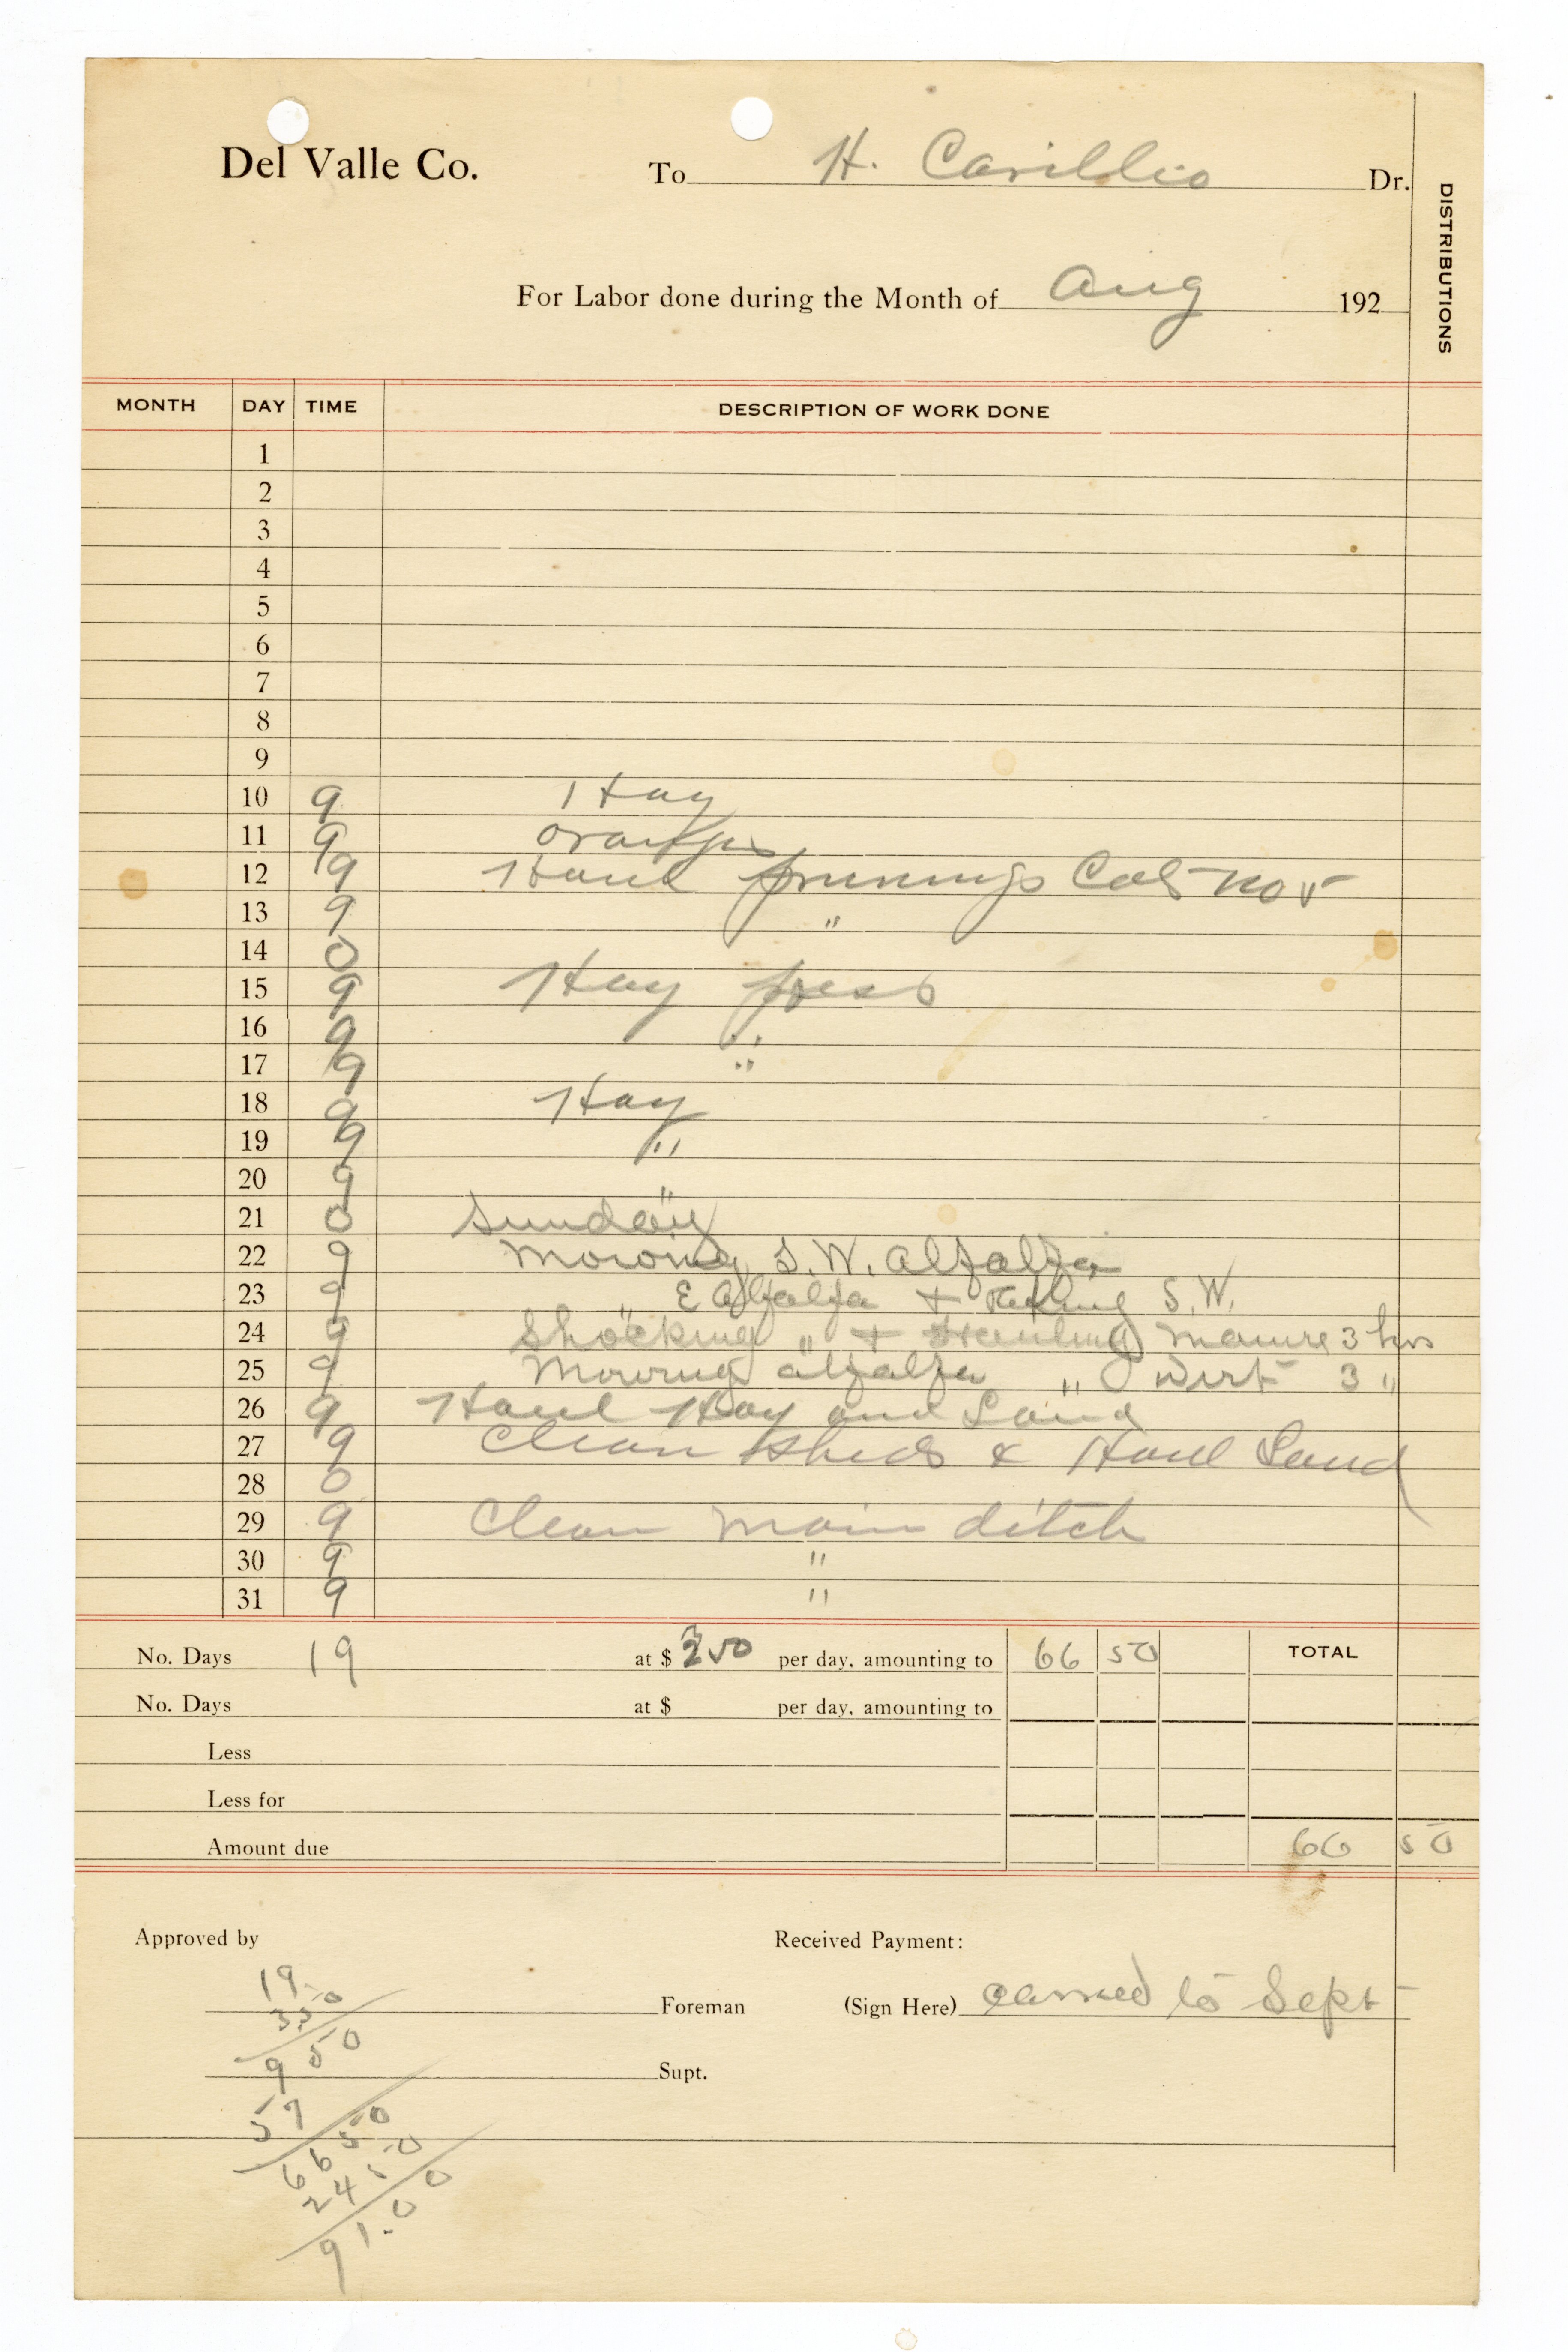 Del Valle Co. To H. Carillio Dr.
DISTRIBUTIONS
For Labor done during the Month of Aug 192
MONTH DAY TIME DESCRIPTION OF WORK DONE
1
2
3
4
5
6
7
8
9
10 9 Hay
11 9 Oranges
12 9 Haul prunings Cal No 5
13 9 "
14 0
15 9 Hay press
16 9 "
17 9 "
18 9 Hay
19 9 "
20 9 "
21 0 Sunday
22 9 Mowing S.W. Alfalfa
23 9 " E Alfalfa + Raking S.W.
24 9 Shocking " + Hauling Manure 3 hrs
25 9 Mowing alfalfa " Dirt 3 "
26 9 Haul Hay and Sand
27 9 Clean sheds & Haul Sand
28 0
29 9 Clean main ditch
30 9 "
31 9 "
No. Days 19 at $ 350 per day, amounting to 66 50 TOTAL
No. Days at $ per day, amounting to
Less
Less for
Amount due 66 50
Approved by Received Payment:
19
350
Foreman (Sign Here) carried to Sept
950
Supt.
57
6650
2450
91.00